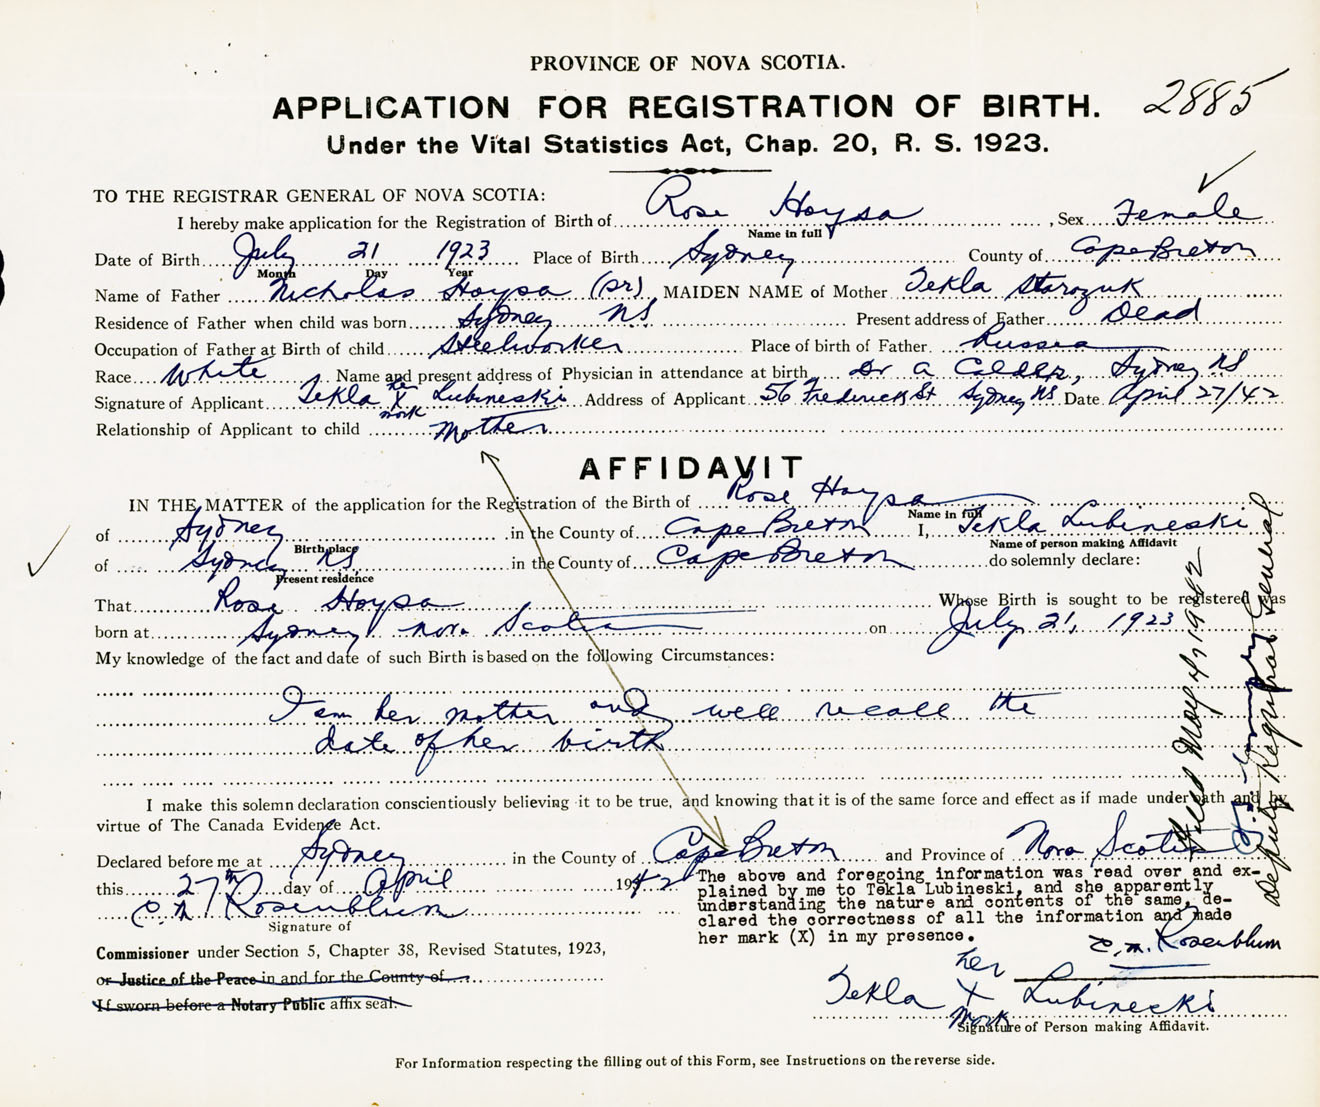 PROVINCE OF NOVA SCOTIA.
APPLICATION FOR REGISTRATION OF BIRTH. 2885
Under the Vital Statistics Act, Chap. 20, R. S. 1923.
TO THE REGISTRAR GENERAL OF NOVA SCOTIA:
I hereby make application for the Registration of Birth of Rose Hoysa, Sex Female
Name in full
Date of Birth July 21 1923 Place of Birth Sydney County of Cape Breton
Month Day Year
Name of Father Nicholas Hoysa (Sr), MAIDEN NAME of Mother Tekla Starozuk
Residence of Father when child was born Sydney NS Present address of Father Dead
Occupation of Father at Birth of child Steelworker Place of birth of Father Russia
Race White Name and present address of Physician in attendance at birth Dr A Calder, Sydney NS
Signature of Applicant Tekla her X mark Lubineski Address of Applicant 56 Frederick St Sydney NS Date April 27/42
Relationship of Applicant to child Mother
AFFIDAVIT
IN THE MATTER of the application for the Registration of the Birth of Rose Hoysa
Name in full
of Sydney in the County of Cape Breton I, Tekla Lubineski
Birth place Name of person making Affidavit
of Sydney NS in the County of Cape Breton do solemnly declare:
Present residence
That Rose Hoysa Whose Birth is sought to be registered was
born at Sydney Nova Scotia on July 21, 1923
My knowledge of the fact and date of such Birth is based on the following Circumstances:
I am her mother and well recall the
date of her birth
I make this solemn declaration conscientiously believing it to be true, and knowing that it is of the same force and effect as if made under oath and by
virtue of The Canada Evidence Act.
Declared before me at Sydney in the County of Cape Breton and Province of Nova Scotia
this 27th day of April 1942
C. M. Rosenblum
Signature of
Commissioner under Section 5, Chapter 38, Revised Statutes, 1923,
or Justice of the Peace in and for the County of
If sworn before a Notary Public affix seal.
The above and foregoing information was read over and ex-
plained by me to Tekla Lubineski, and she apparently
understanding the nature and contents of the same, de-
clared the correctness of all the information and made
her mark (X) in my presence.
C. M. Rosenblum
Tekla her X mark Lubinecki
Signature of Person making Affidavit.
For Information respecting the filling out of this Form, see Instructions on the reverse side.
Filed May 4, 1942
Deputy Registrar General